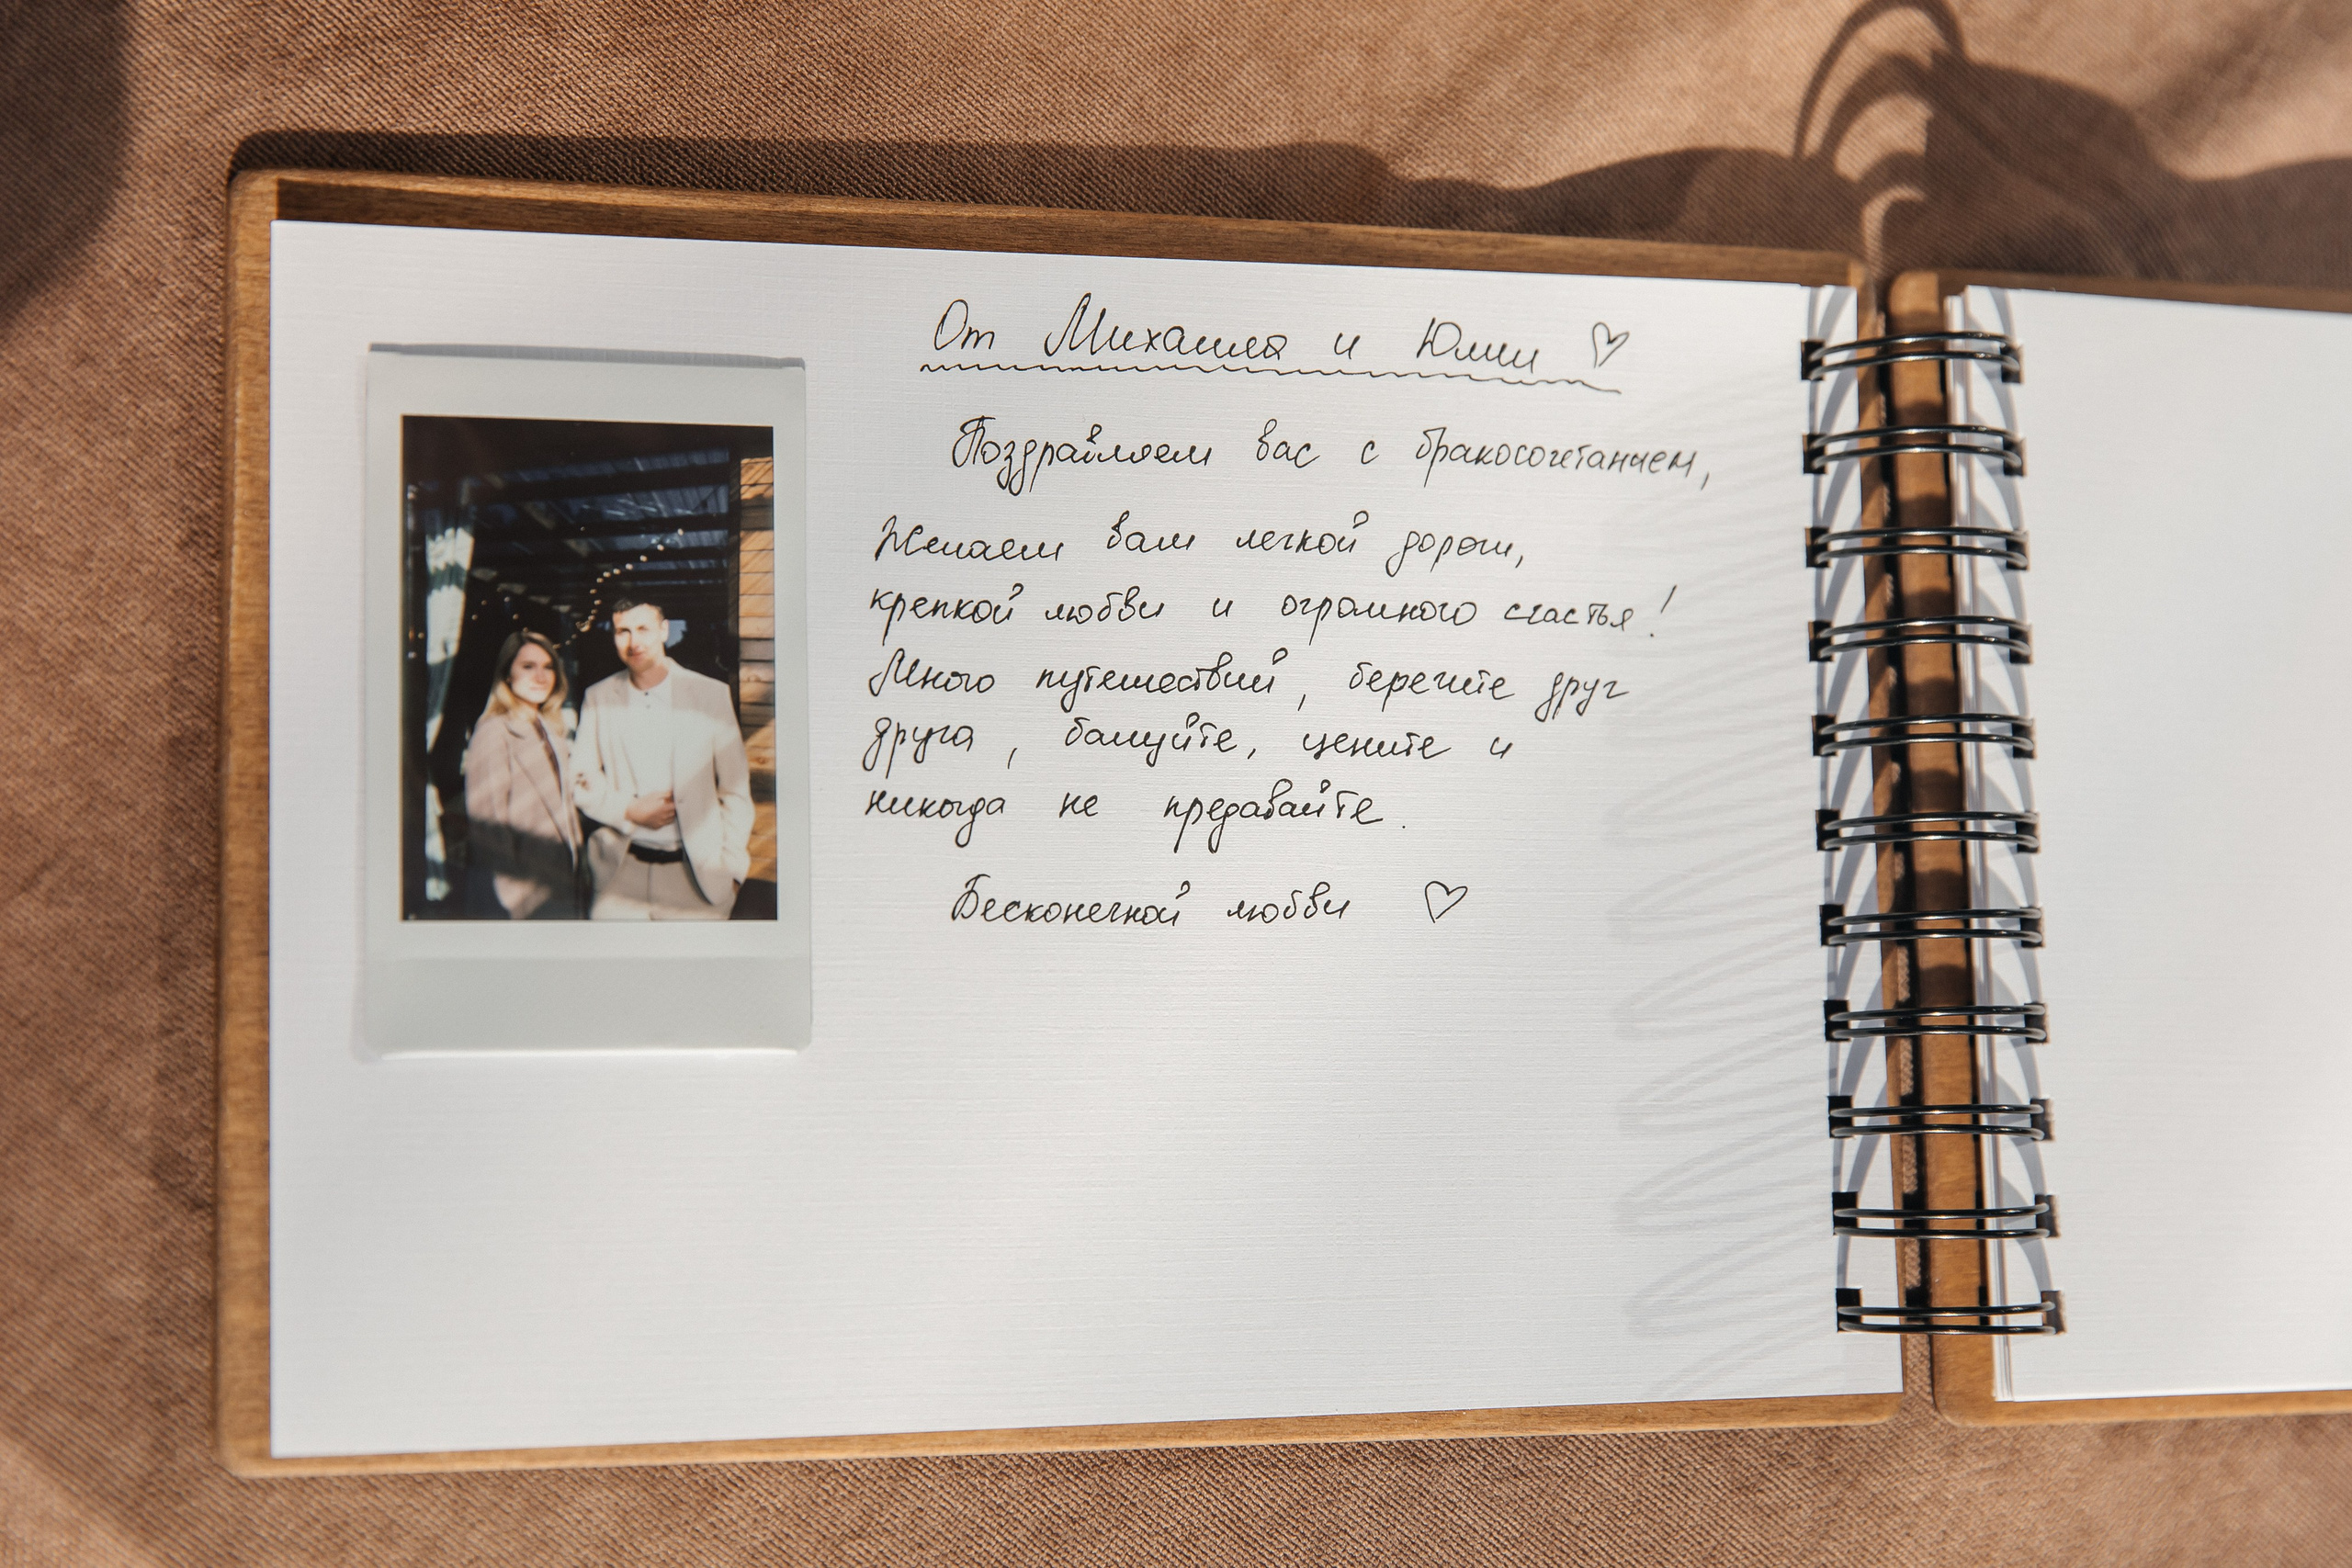 От Михаила и Юлии ♡
Поздравляем вас с бракосочетанием,
Желаем вам легкой дороги,
крепкой любви и огромного счастья!
Много путешествий, берегите друг
друга, балуйте, цените и
никогда не предавайте.
Бесконечной любви ♡